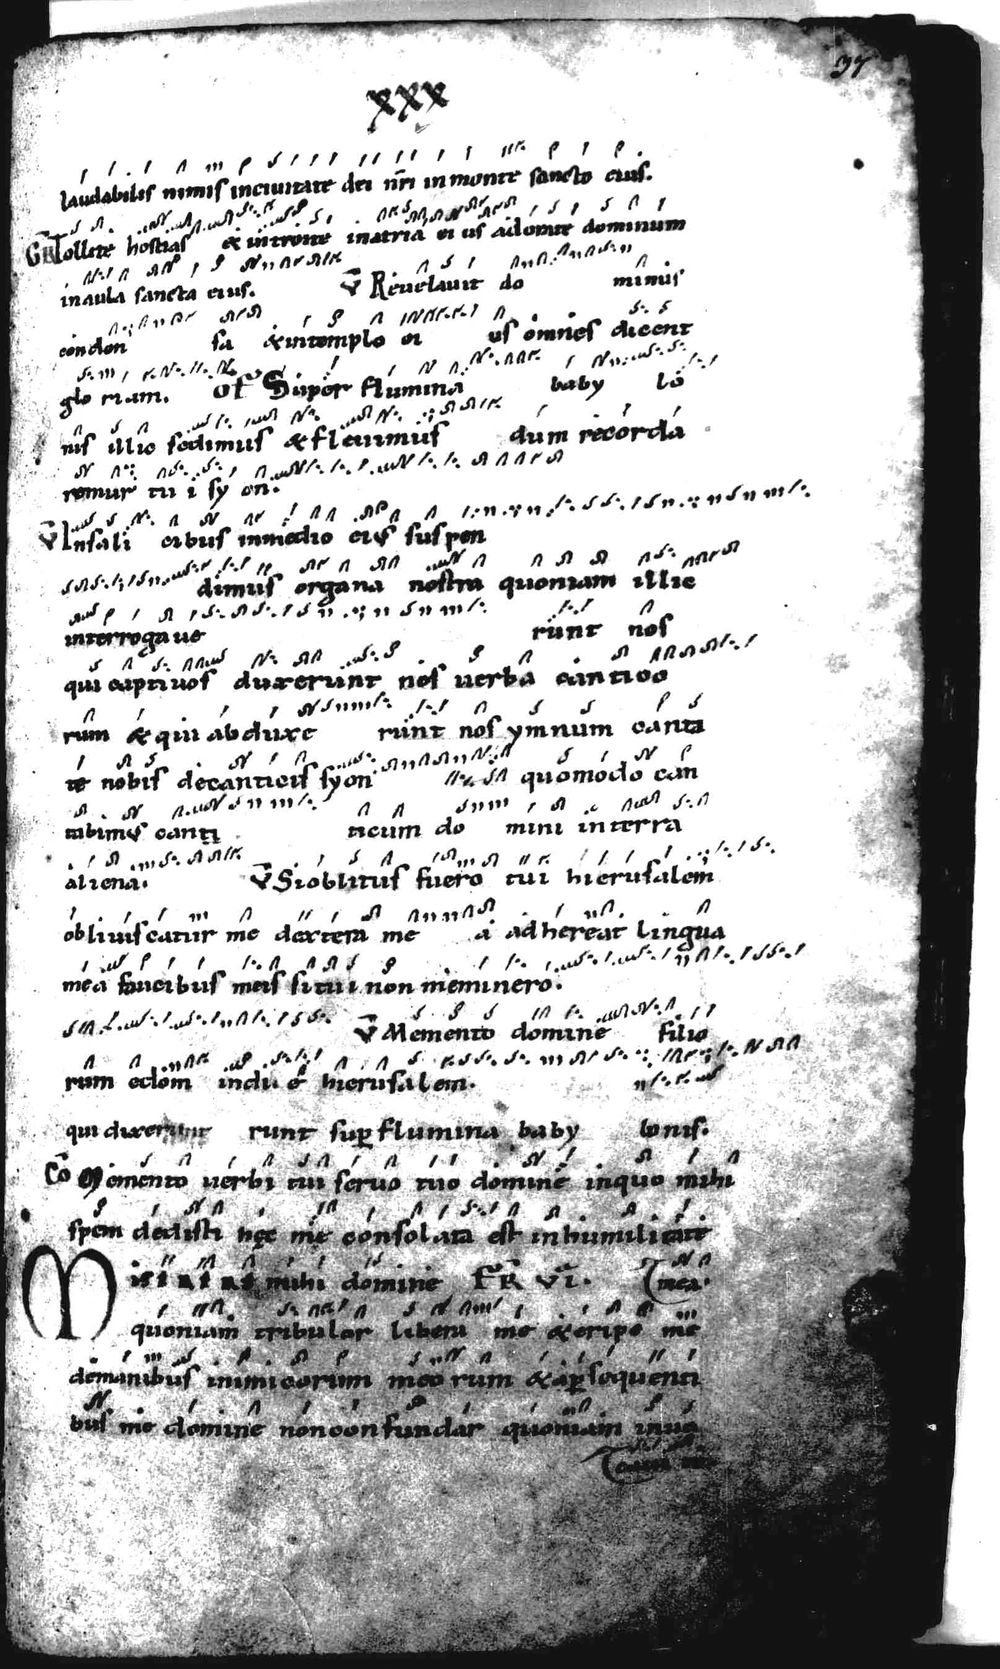 37
xxx
laudabilis nimis inciuitate dei nr̄i inmonte sancto eius.
GR Tollite hostias & introite inatria ei us adorate dominum
inaula sancta eius. V Reuelauit do minus
condon sa & intemplo ei us omnes dicent
glo riam. OF Super flumina baby lo
nis illic sedimus & fleuimus dum recorda
remur tu i sy on.
V Insali cibus inmedio eiꝰ suspen
dimus organa nostra quoniam illic
interrogaue runt nos
qui captiuos duxerunt nos uerba cantico
rum & qui abduxe runt nos ymnum canta
te nobis decanticis syon quomodo can
tabimꝰ canti ticum do mini interra
aliena. V Si oblitus fuero tui hierusalem
obliuiscatur me dextera me a adhereat lingua
mea faucibus meis si tui non meminero.
V Memento domine filio
rum edom indi e hierusalem.
qui dixerunt runt suꝑ flumina baby lonis.
Cō Memento uerbi tui seruo tuo domine inquo mihi
spem dedisti hęc me consolata est inhumilitate
Miserere mihi domine FR VI. mea.
quoniam tribulor libera me & eripe me
demanibus inimicorum meo rum & aꝑsequenti
bus me domine non confundar quoniam inuo